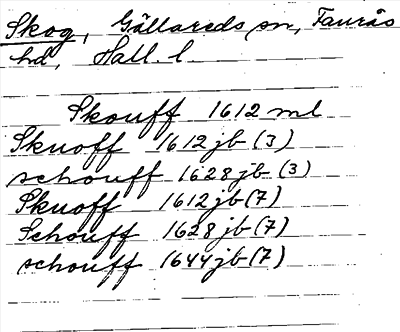 Skog, Gällareds sn, Faurås
hd, Hall. l.
Skouff 1612 ml
Skuoff 1612 jb (3)
schouff 1628 jb (3)
Skuoff 1612 jb (7)
Schouff 1628 jb (7)
schouff 1644 jb (7)